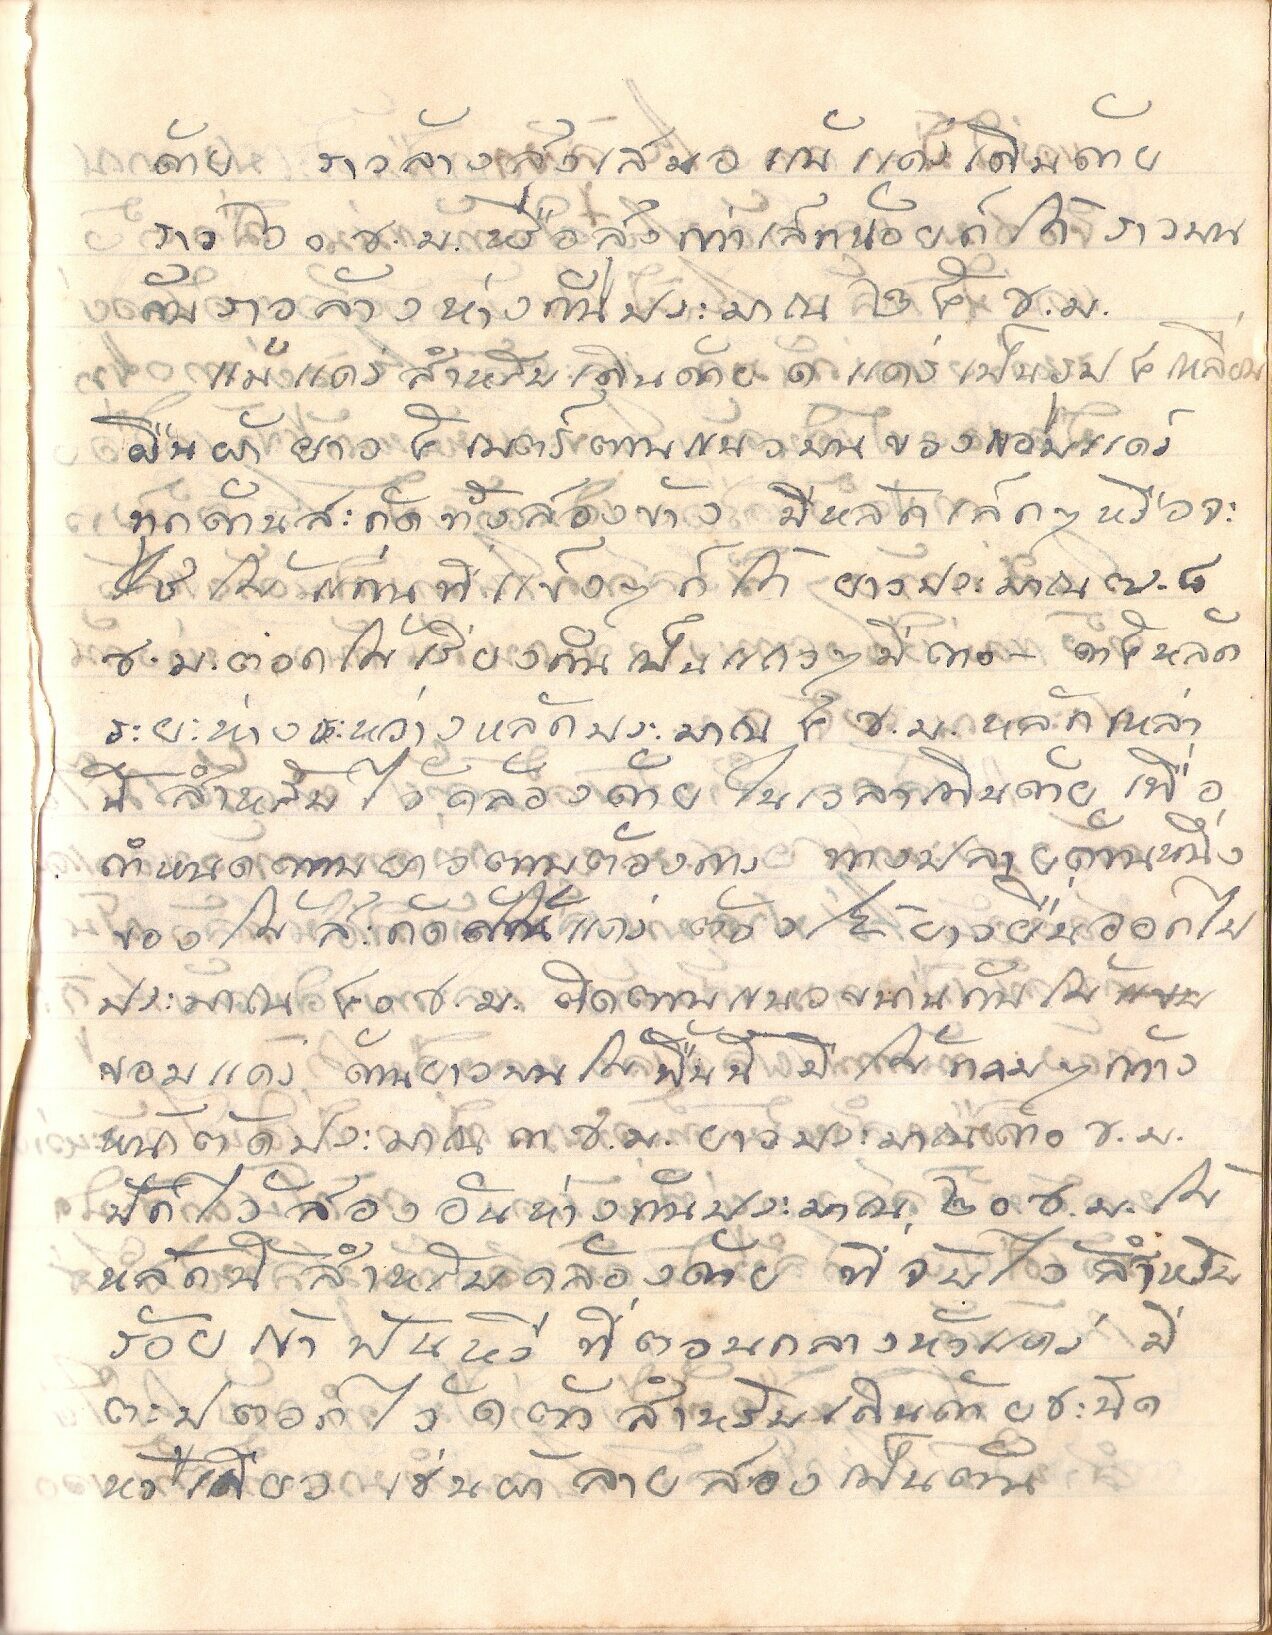 ด้าย ราวล่างสูงเสมอแม้แคร่เดินด้าย
ราว ๖๐ ซ.ม. หรือสูงกว่าเล็กน้อยก็ได้ ราวบน
กับราวล่างห่างกันประมาณ ๒๕ ซ.ม.
แม้แคร่สำหรับเดินด้ายคือแคร่เป็นรูป ๔ เหลี่ยม
ผืนผ้ายาว ๔ เมตร์ตามแนวบนของขอบแคร่
ทุกด้านสะกัดทั้งสองข้าง มีหลักเล็กๆหรือจะ
ใช้ไม้แก่นที่แข็งๆก็ได้ ยาวประมาณ ๗-๘
ซ.ม. ตอกไม้เรียงกันเป็นแถวๆมี ๓๐ - ๓๕ หลัก
ระยะห่างระหว่างหลักประมาณ ๕ ซ.ม. หลักเหล่า
นี้สำหรับไว้คล้องด้ายในเวลาเดินด้าย เพื่อ
กำหนดความยาวตามต้องการ ทางปลายด้านหนึ่ง
ของไม้สะกัด แคร่ ต้องให้ยาวยื่นออกไป
ประมาณ ๕๐ ซ.ม. ติดตามแนวขนานกับไม้
ขอบแคร่ ด้านยาวบนไม้พื้นนี้ มีไม้กลมๆกว้าง
หน้าตัดประมาณ ๓ ซ.ม. ยาวประมาณ ๓๐ ซ.ม.
ปักไว้สองอันห่างกันประมาณ ๒๐ ซ.ม. ไม้
หลักนี้สำหรับคล้องด้าย ที่จับไว้สำหรับ
ร้อยผ้าฟันหวี ที่ตอนกลางหัวแคร่ มี
ตะปูตอกไว้ ๑ ตัว สำหรับเดินด้ายชะนิด
หัวเดียว เช่นผ้าลายสองเป็นต้น